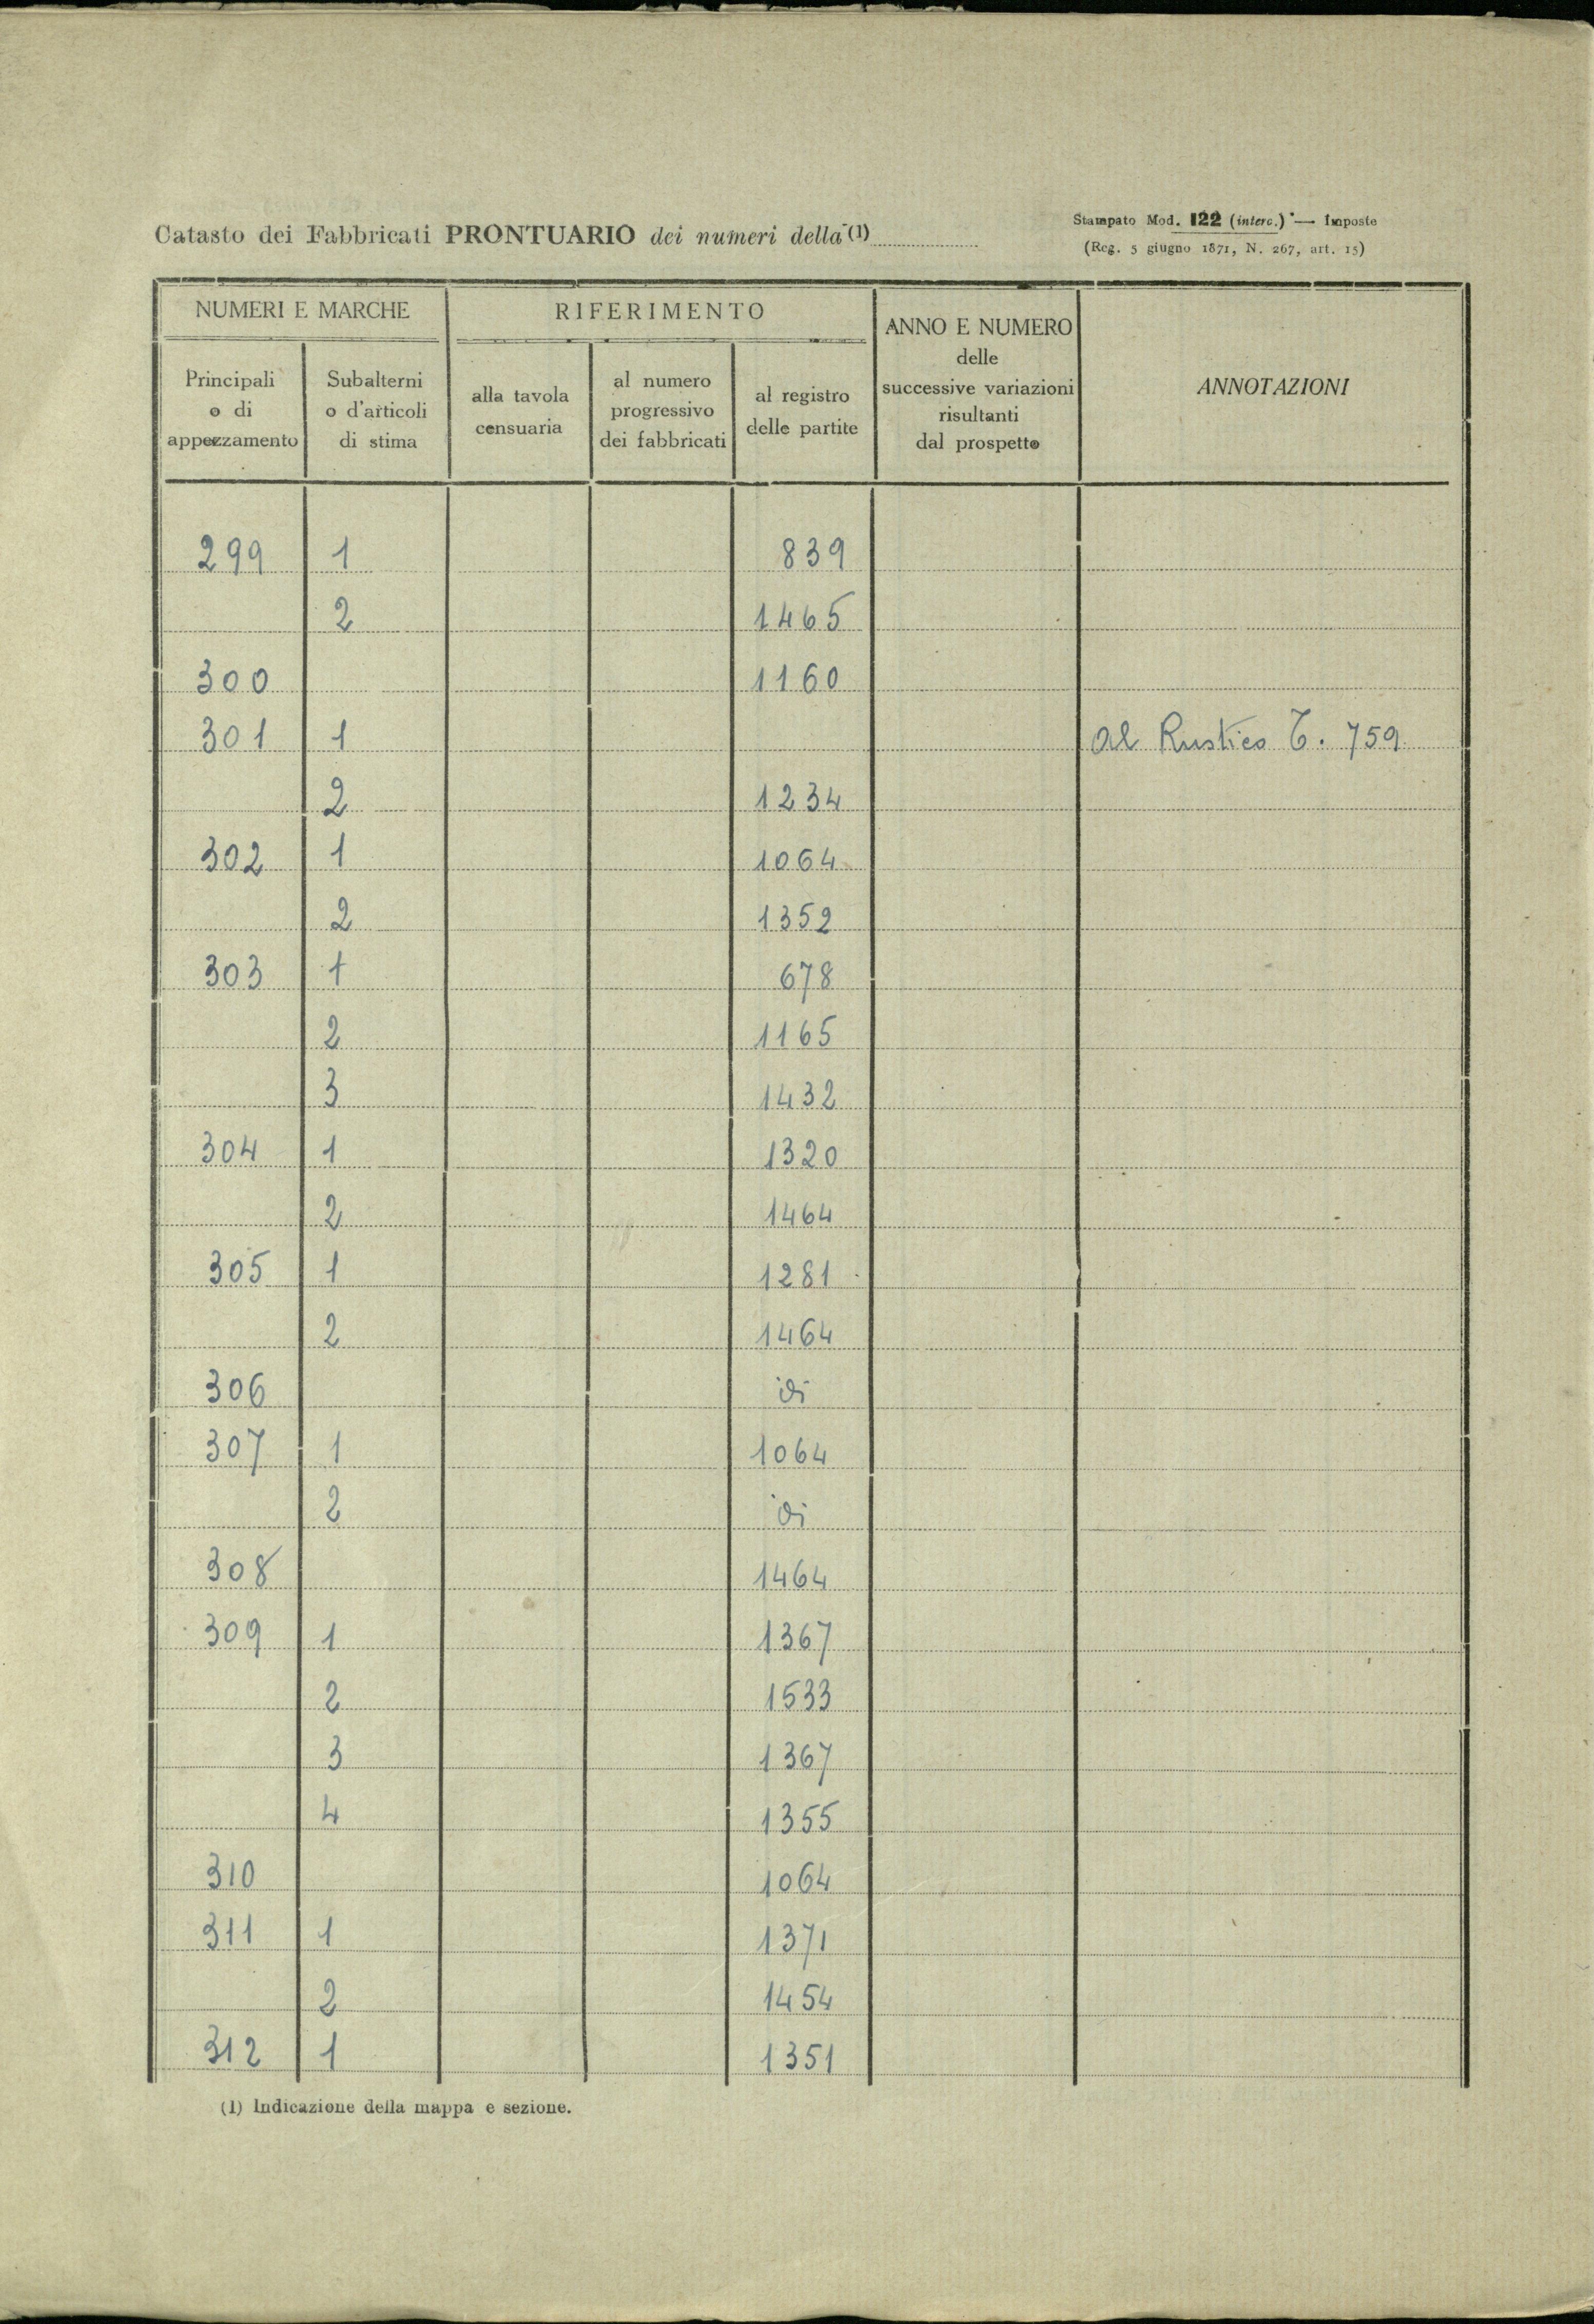 Catasto dei Fabbricati PRONTUARIO dei numeri della (1)
Stampato Mod. 122 (interc.) — Imposte
(Reg. 5 giugno 1871, N. 267, art. 15)
NUMERI E MARCHE
RIFERIMENTO
ANNO E NUMERO
delle
successive variazioni
risultanti
dal prospetto
ANNOTAZIONI
Principali
o di
appezzamento
Subalterni
o d'articoli
di stima
alla tavola
censuaria
al numero
progressivo
dei fabbricati
al registro
delle partite
299 1 839
2 1465
300 1160
301 1 Al Rustico T. 759
2 1234
302 1 1064
2 1352
303 1 678
2 1165
3 1432
304 1 1320
2 1464
305 1 1281
2 1464
306 di
307 1 1064
2 di
308 1464
309 1 1367
2 1533
3 1367
4 1355
310 1064
311 1 1371
2 1454
312 1 1351
(1) Indicazione della mappa e sezione.